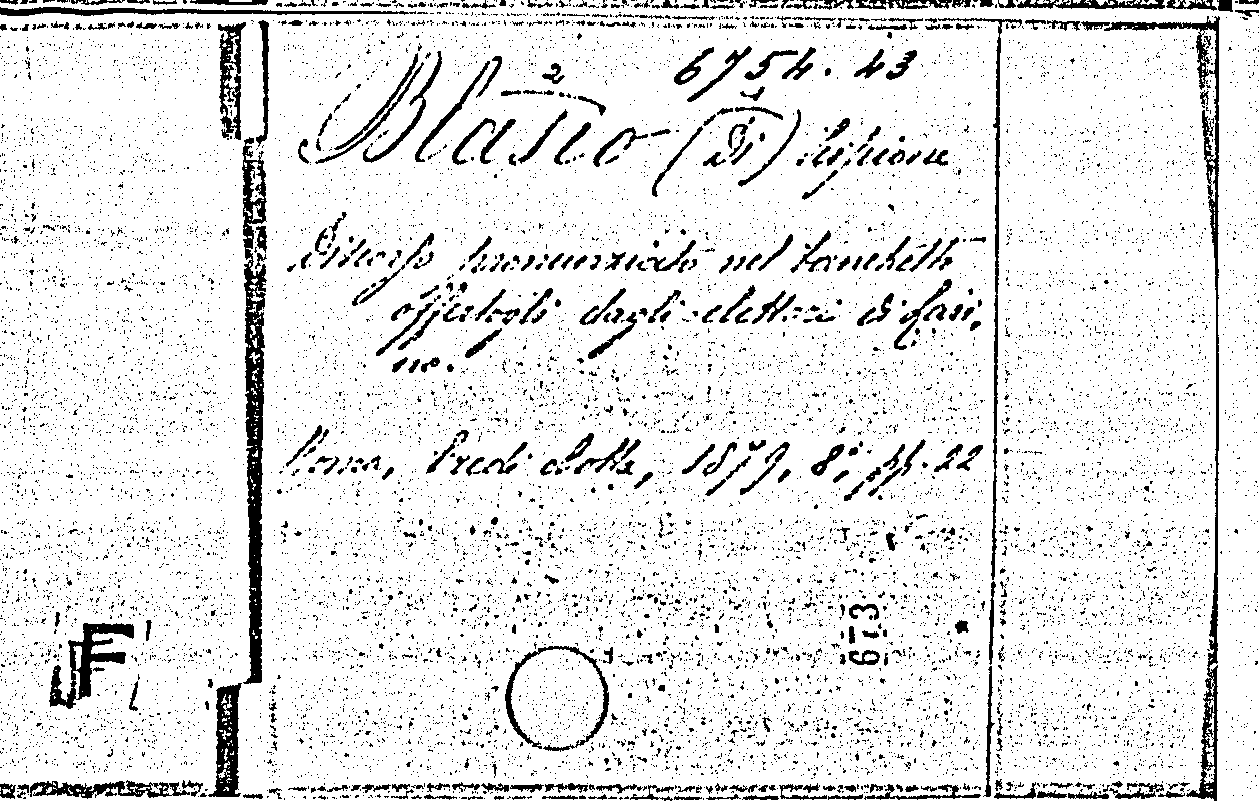 6754. 43
2 1
Blasio (Di) Scipione
Discorso pronunziato nel banchetto
offertogli dagli elettori di Lari,
no.
Roma, Eredi Botta, 1879, 8°, pp. 22
673